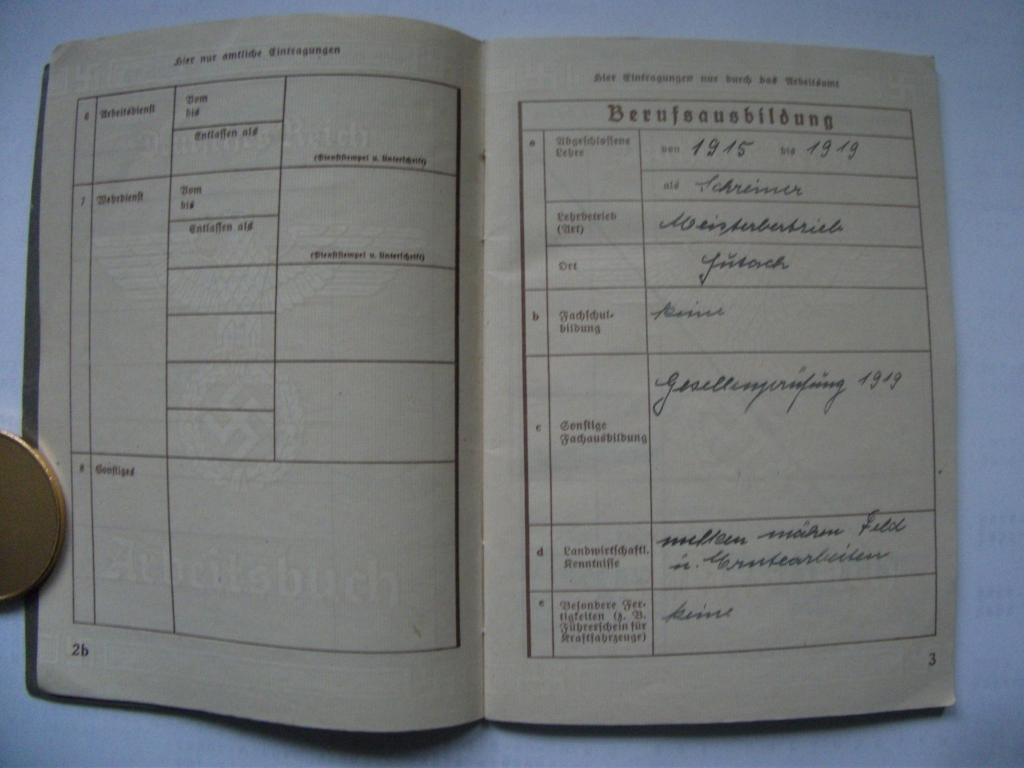 Hier nur amtliche Eintragungen
6 Arbeitsdienst
Vom
bis
Entlassen als
(Dienststempel u. Unterschrift)
7 Wehrdienst
Vom
bis
Entlassen als
(Dienststempel u. Unterschrift)
8 Sonstiges
Deutsches Reich
Arbeitsbuch
2b
Hier Eintragungen nur durch das Arbeitsamt
Berufsausbildung
a Abgeschlossene
Lehre
von 1915 bis 1919
als Schreiner
Lehrbetrieb
(Art)
Meisterbetrieb
Ort
Gutach
b Fachschul-
bildung
keine
c Sonstige
Fachausbildung
Gesellenprüfung 1919
d Landwirtschaftl.
Kenntnisse
melken mähen Feld
u. Erntearbeiten
e Besondere Fer-
tigkeiten (z. B.
Führerschein für
Kraftfahrzeuge)
keine
3